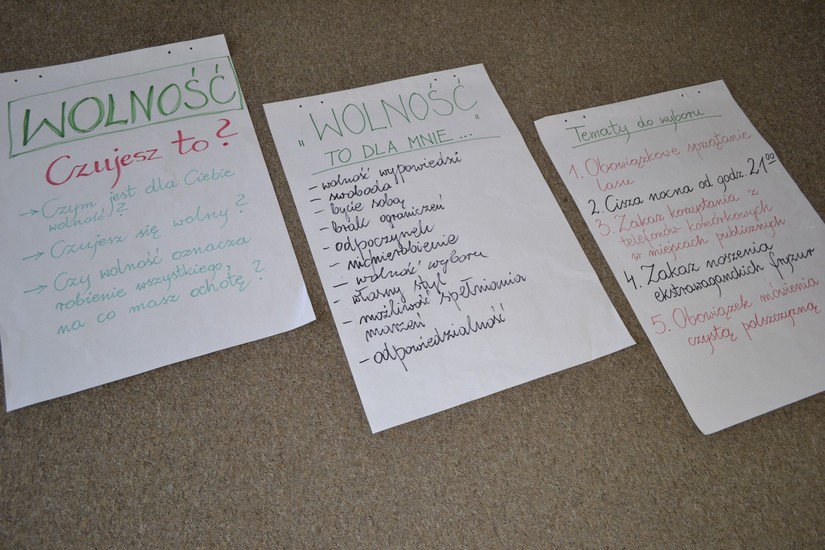 WOLNOŚĆ
Czujesz to?
→ Czym jest dla Ciebie
wolność?
→ Czujesz się wolny?
→ Czy wolność oznacza
robienie wszystkiego,
na co masz ochotę?
"WOLNOŚĆ"
TO DLA MNIE...
- wolność wypowiedzi
- swoboda
- bycie sobą
- brak ograniczeń
- odpoczynek
- nicnierobienie
- wolność wyboru
- własny styl
- możliwość spełniania
marzeń
- odpowiedzialność
Tematy do wyboru
1. Obowiązkowe sprzątanie
lasu
2. Cisza nocna od godz 21⁰⁰
3. Zakaz korzystania z
telefonów komórkowych
w miejscach publicznych
4. Zakaz noszenia
ekstrawaganckich fryzur
5. Obowiązek mówienia
czystą polszczyzną